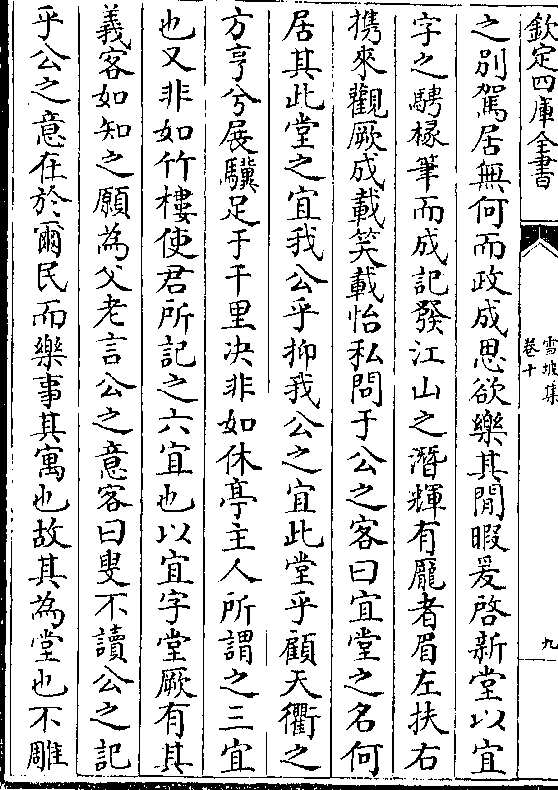 欽定四庫全書
雪坡集
卷十
九
之別駕居無何而政成思欲樂其閒暇爰啓新堂以宜
字之騁椽筆而成記發江山之潛輝有龐者眉左扶右
携來觀厥成載笑載怡私問于公之客曰宜堂之名何
居其此堂之宜我公乎抑我公之宜此堂乎顧天衢之
方亨兮展驥足于千里決非如休亭主人所謂之三宜
也又非如竹樓使君所記之六宜也以宜字堂厥有其
義客如知之願為父老言公之意客曰叟不讀公之記
乎公之意在於爾民而樂事其寓也故其為堂也不雕